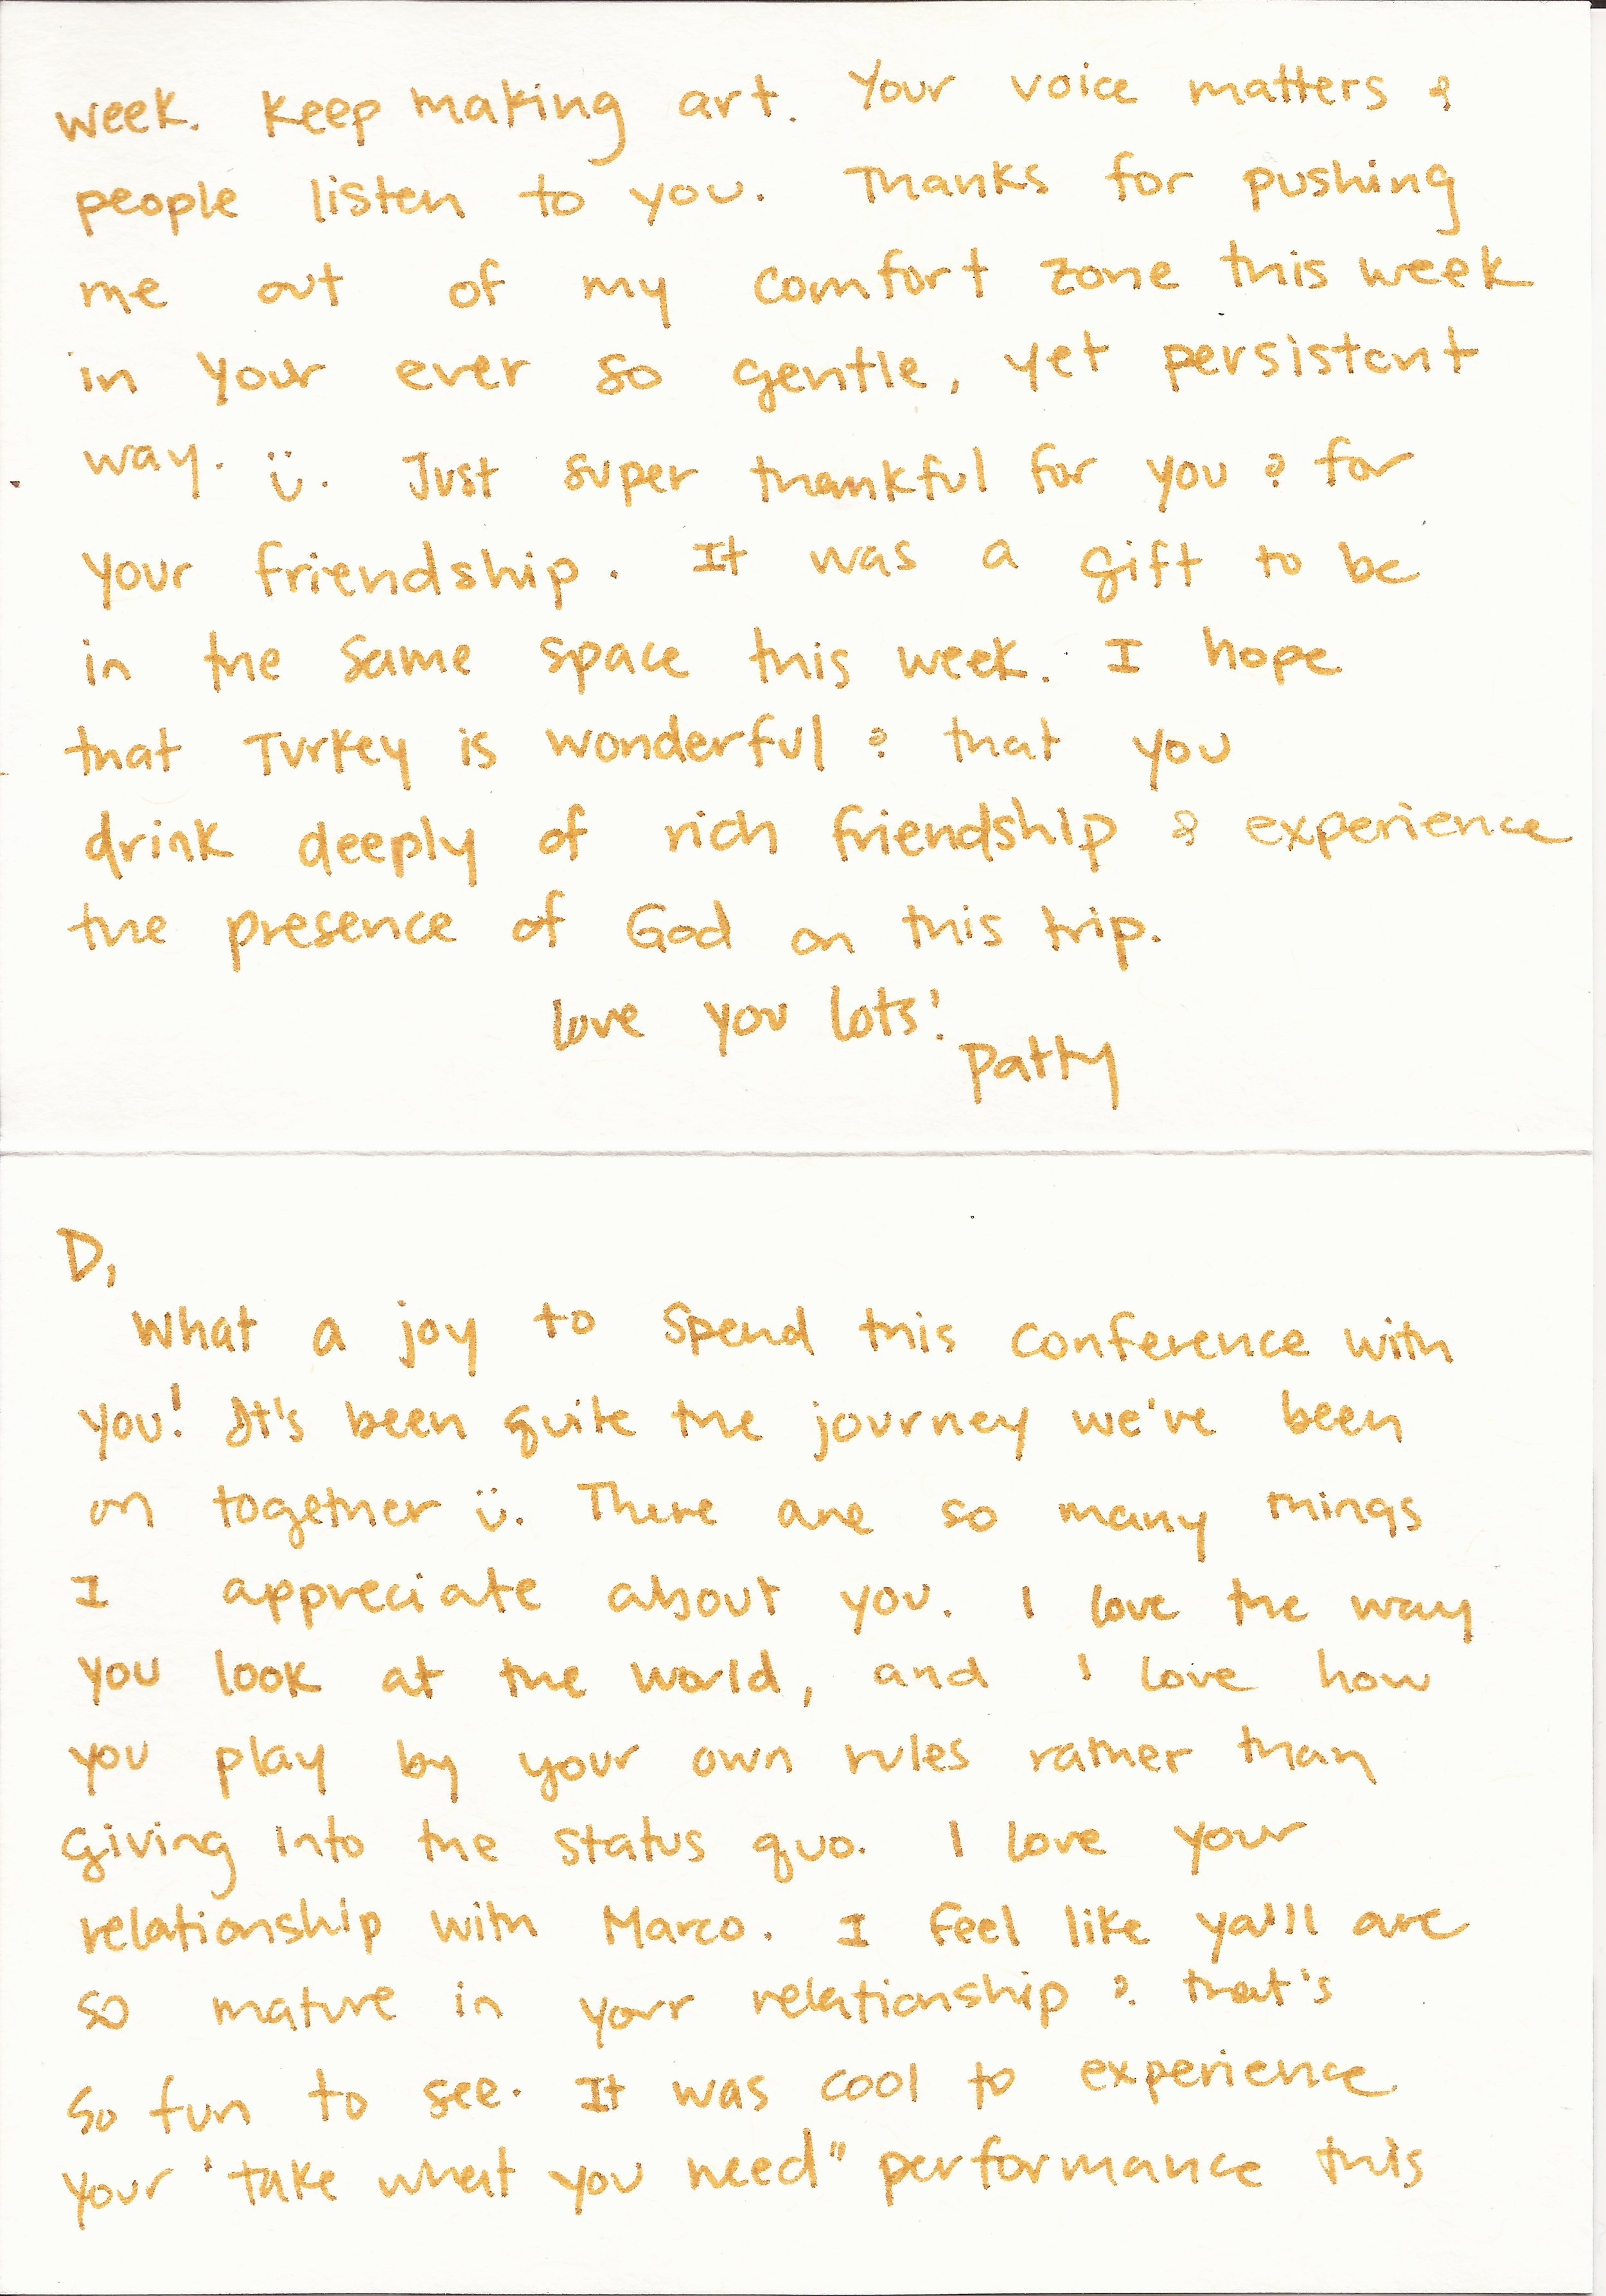 week. Keep making art. Your voice matters &
people listen to you. Thanks for pushing
me out of my comfort zone this week
in your ever so gentle, yet persistent
way. ü. Just super thankful for you & for
your friendship. It was a gift to be
in the same space this week. I hope
that Turkey is wonderful & that you
drink deeply of rich friendship & experience
the presence of God on this trip.
love you lots!
Patty
D,
What a joy to spend this conference with
you! It's been quite the journey we've been
on together ü. There are so many things
I appreciate about you. I love the way
you look at the world, and I love how
you play by your own rules rather than
giving into the status quo. I love your
relationship with Marco. I feel like ya'll are
so mature in your relationship & that's
so fun to see. It was cool to experience
your "take what you need" performance this